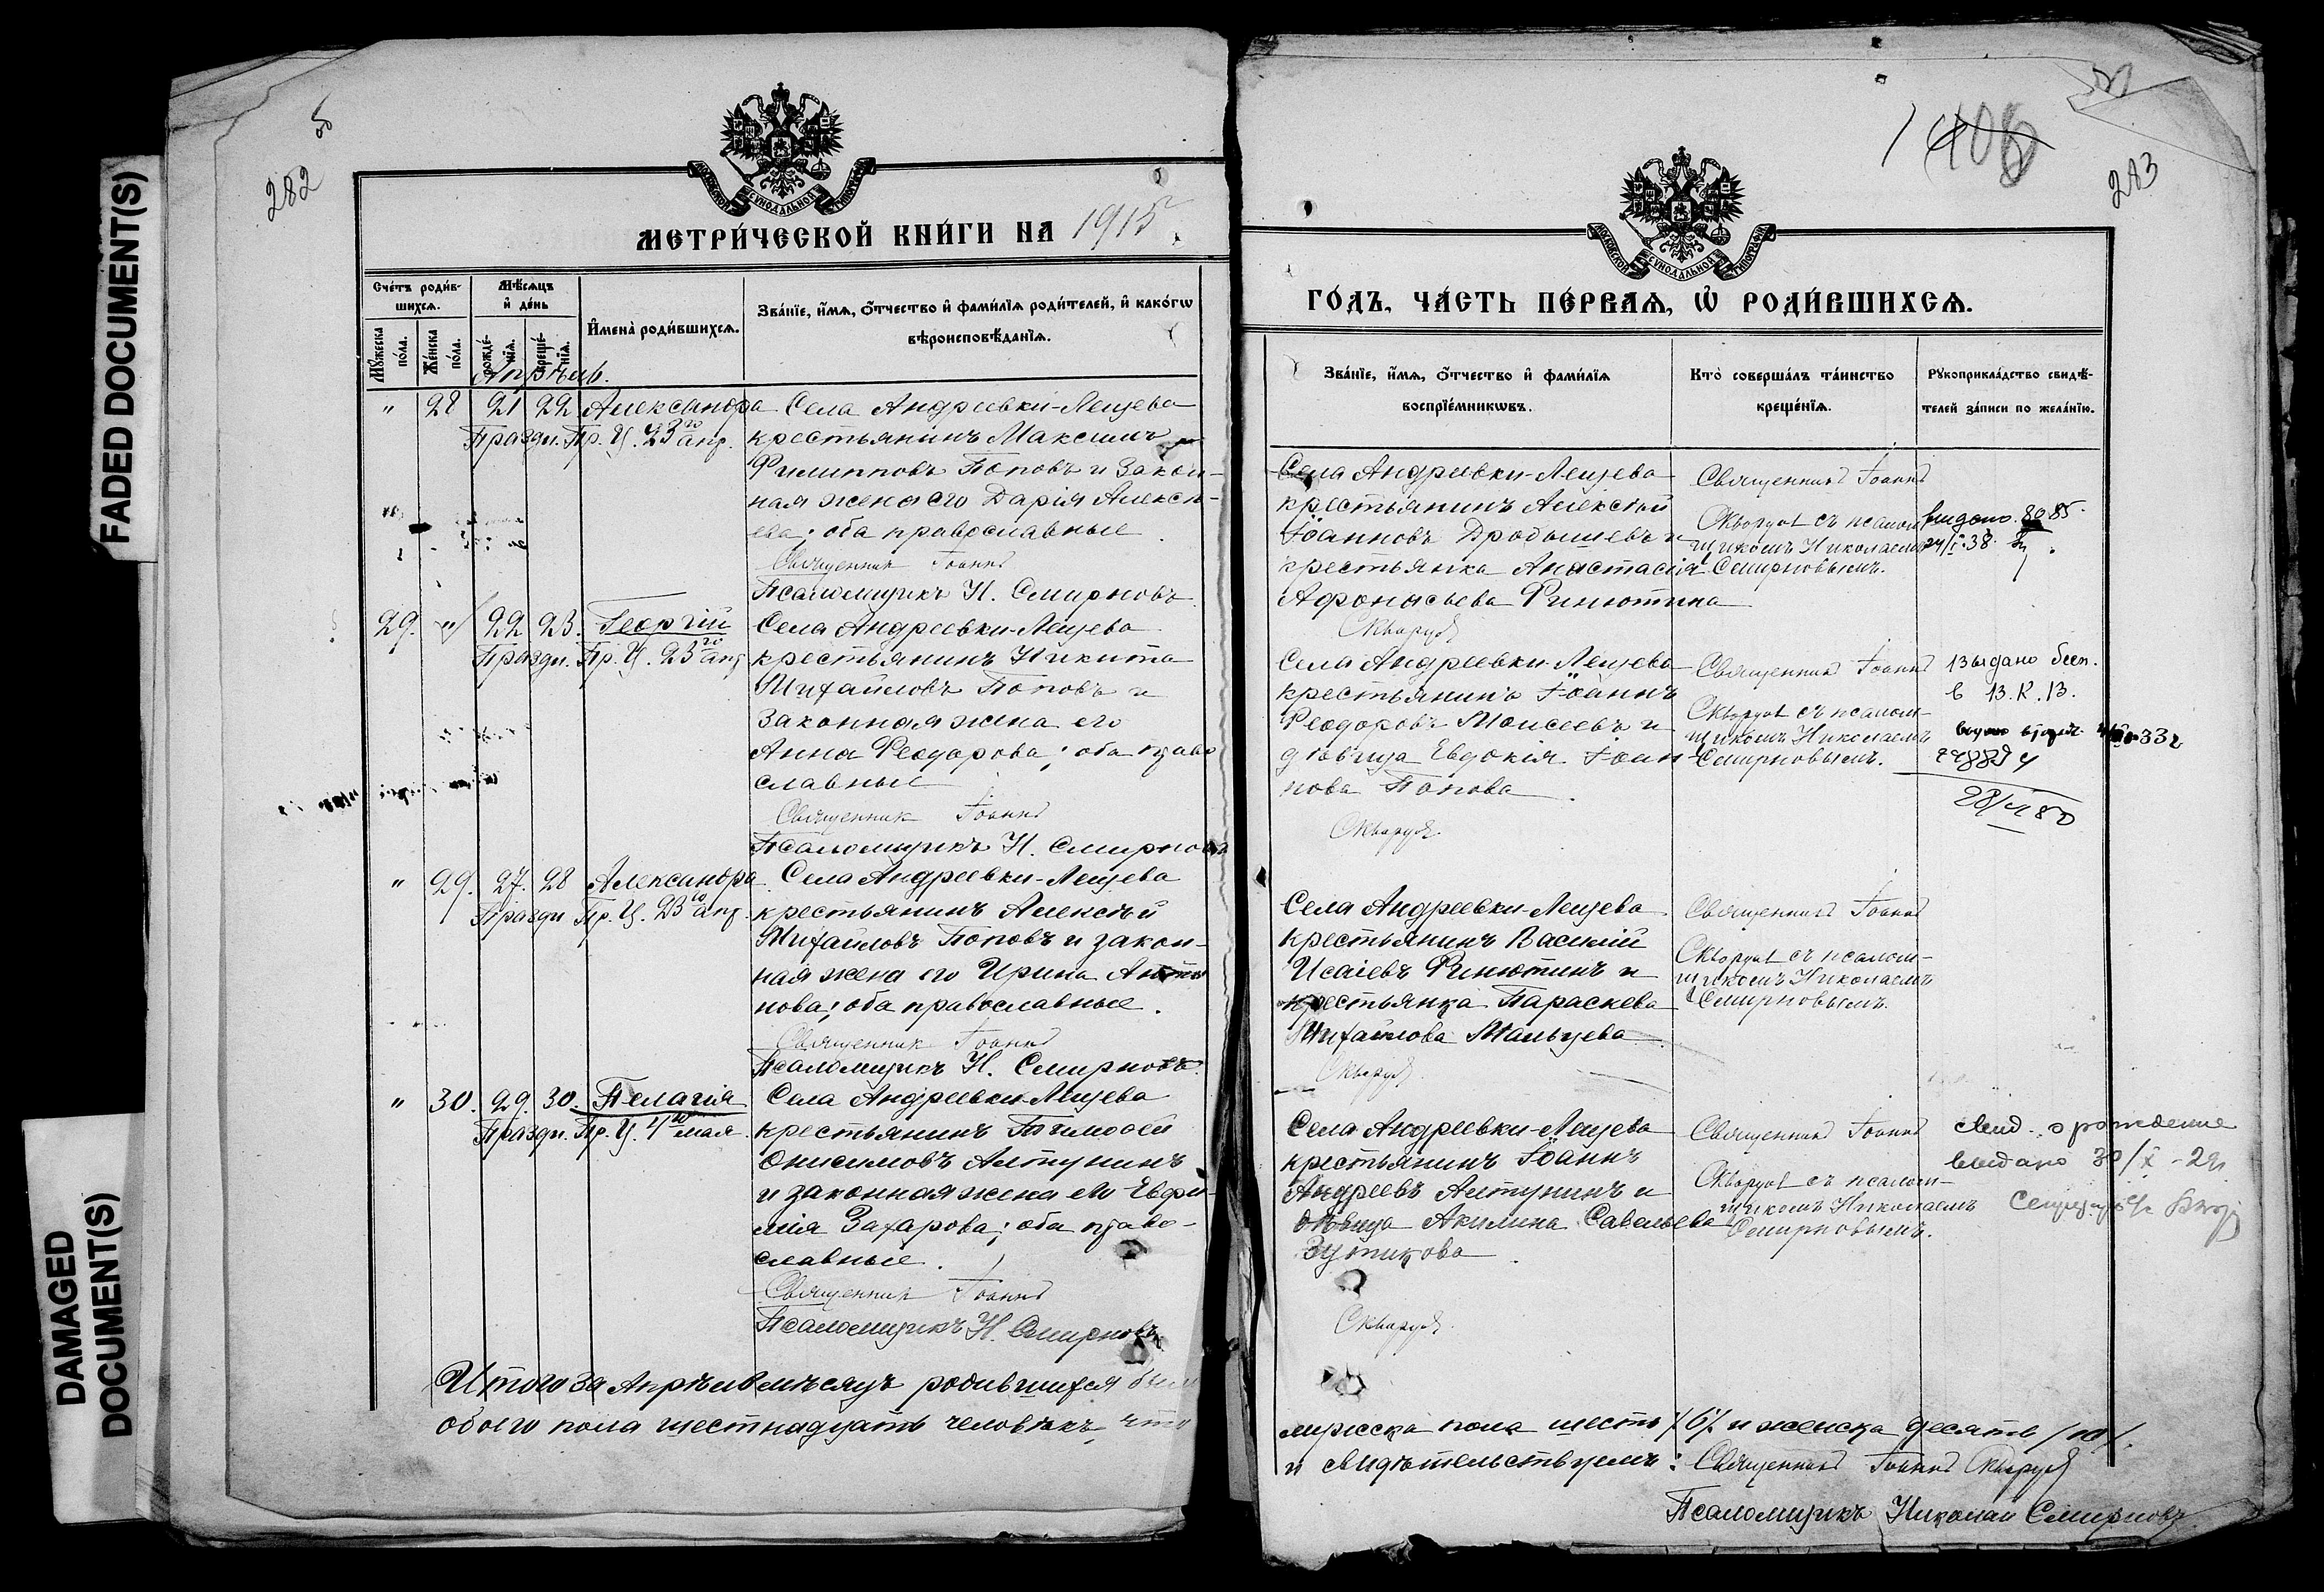 FADED DOCUMENT(S)
DAMAGED
DOCUMENT(S)
282
МОСКОВСКОЙ СѴНОДАЛЬНОЙ ТИПОГРАФІИ
МЕТРИ́ЧЕСКОЙ КНИ́ГИ НА 1915
Счéтъ роди́в-
шихсѧ.
Мꙋ́жеска
по́ла.
Же́нска
по́ла.
Мѣ́сѧцъ
и҆ де́нь
рожде́-
нїѧ.
креще́-
нїѧ.
И҆мена̀ роди́вшихсѧ.
Зва́нїе, и҆́мѧ, ѻ҆́тчество и҆ фами́лїѧ роди́телей, и҆ како́гѡ
вѣроисповѣ́данїѧ.
Апрѣль.
" 28 21 22 Александра
Праздн. Пр. Ц. 23го апр.
Села Андреевки-Лещева
крестьянинъ Максимъ
Филипповъ Поповъ и закон-
ная жена его Дарія Алексѣ-
ева; оба православные
Священник Іоаннъ
Псаломщикъ Н. Смирновъ
29. " 22 23. Георгій
Праздн. Пр. Ц. 23го апр
Села Андреевки-Лещева
крестьянинъ Никита
Михайловъ Поповъ и
законная жена его
Анна Ѳеодорова; оба право
славные
Священник Іоаннъ
Псаломщикъ Н. Смирновъ
" 29. 27. 28 Александра
Праздн Пр. Ц. 23го апр.
Села Андреевки-Лещева
крестьянинъ Алексѣй
Михайловъ Поповъ и закон-
ная жена его Ирина Анто
нова; оба православные.
Священник Іоаннъ
Псаломщикъ Н. Смирновъ.
" 30. 29. 30. Пелагія
Праздн. Пр. Ц. 4го мая.
Села Андреевки-Лещева
крестьянинъ Тимоѳей
Онисимовъ Алтунинъ
и законная жена его Евфи-
мія Захарова; оба право-
славные.
Священник Іоаннъ
Псаломщикъ Н. Смирновъ
Итого за Апрѣль мѣсяцъ родившихся было
обоего пола шестнадцать человѣкъ, что
283
МОСКОВСКОЙ СѴНОДАЛЬНОЙ ТИПОГРАФІИ
ГО́ДЪ, ЧА́СТЬ ПЕ́РВАѦ, Ѡ҆ РОДИ́ВШИХСѦ.
Зва́нїе, и҆́мѧ, ѻ҆́тчество и҆ фами́лїѧ
воспрїе́мникѡвъ.
Кто̀ соверша́лъ та́инство
креще́нїѧ.
Рꙋкоприкла́дство свидѣ́-
телей за́писи по жела́нїю.
Села Андреевки-Лещева
крестьянинъ Алексѣй
Іоанновъ Дробышевъ и
крестьянка Анастасія
Афонасьева Финютина
Скваруя
Священникъ Іоаннъ
Скваруя съ псалом
щикомъ Николаемъ
Смирновымъ.
выдано 8085
24/I 38.
Села Андреевки-Лещева
крестьянинъ Іоаннъ
Ѳеодоровъ Моисеевъ и
дѣвица Евдокія Іоан-
нова Попова
Скваруя.
Священникъ Іоаннъ
Скваруя съ псалом-
щикомъ Николаемъ
Смирновымъ.
выдано
33 г
Села Андреевки-Лещева
крестьянинъ Василій
Исаіевъ Финютинъ и
крестьянка Параскева
Михайлова Мальцева
Скваруя.
Священникъ Іоаннъ
Скваруя съ псалом-
щикомъ Николаемъ
Смирновымъ.
Села Андреевки-Лещева
крестьянинъ Іоаннъ
Андреевъ Алтунинъ и
дѣвица Акилина Савельева
Зутикова
Скваруя.
Священникъ Іоаннъ
Скваруя съ псалом-
щикомъ Николаемъ
Смирновымъ.
свид. о рождение
выдано 30/X -
мужеска пола шесть /6/ и женска десять /10/.
и свидѣтельствуемъ: Священникъ Іоаннъ Скваруя
Псаломщикъ Николай Смирновъ.